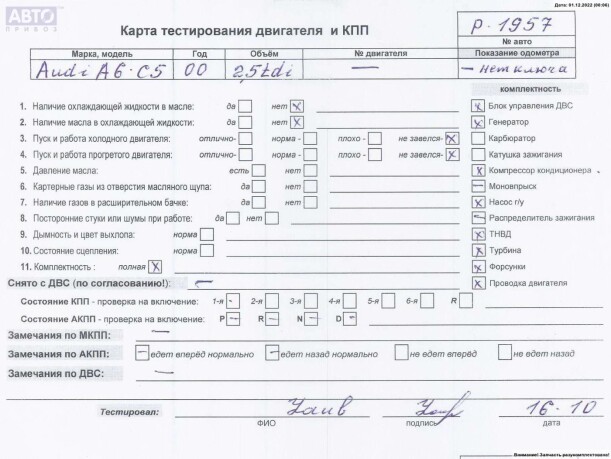 Дата: 01.12.2022 (00:06)
АВТО
ПРИВОЗ
Карта тестирования двигателя и КПП
р.1957
№ авто
Марка, модель Год Объём № двигателя Показание одометра
Audi A6-C5 00 2,5tdi — - нет ключа
комплектность
1. Наличие охлаждающей жидкости в масле: да нет x
x Блок управления ДВС
2. Наличие масла в охлаждающей жидкости: да нет x
x Генератор
3. Пуск и работа холодного двигателя: отлично- норма - плохо - не завелся- x
Карбюратор
4. Пуск и работа прогретого двигателя: отлично- норма - плохо - не завелся- x
Катушка зажигания
5. Давление масла: есть нет
x Компрессор кондиционера
6. Картерные газы из отверстия масляного щупа: да нет
— Моновпрыск
7. Наличие газов в расширительном бачке: да нет
x Насос г/у
8. Посторонние стуки или шумы при работе: да нет
— Распределитель зажигания
9. Дымность и цвет выхлопа: норма
x ТНВД
10. Состояние сцепления: норма
x Турбина
11. Комплектность : полная x
x Форсунки
Снято с ДВС (по согласованию!): —
x Проводка двигателя
Состояние КПП - проверка на включение: 1-я - 2-я 3-я 4-я 5-я 6-я R
Состояние АКПП - проверка на включение: P — R — N — D —
Замечания по МКПП: —
Замечания по АКПП: — едет вперёд нормально — едет назад нормально не едет вперёд не едет назад
Замечания по ДВС: —
Тестировал: 16-10
ФИО подпись дата
Внимание! Запчасть разукомплектована!